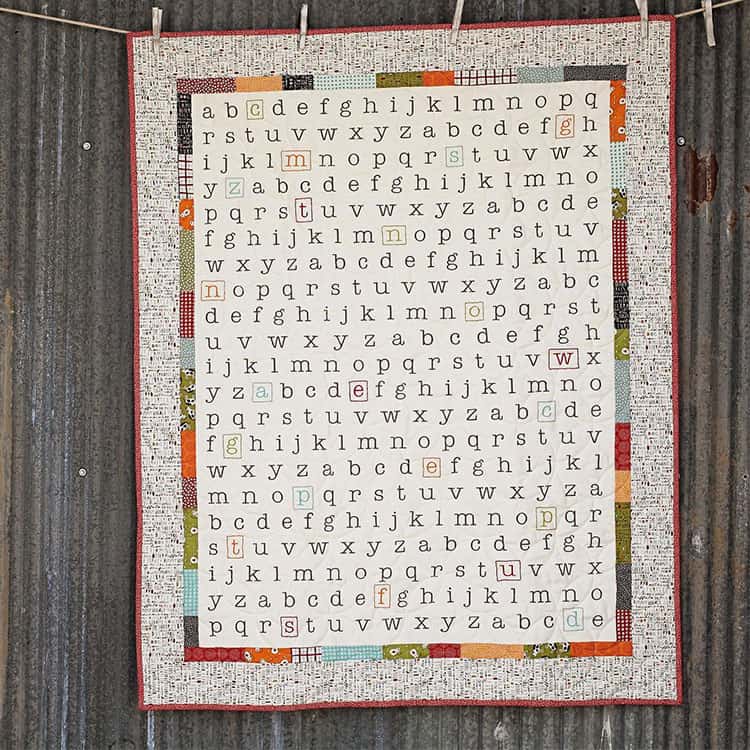 a b c d e f g h i j k l m n o p q
r s t u v w x y z a b c d e f g h
i j k l m n o p q r s t u v w x
y z a b c d e f g h i j k l m n o
p q r s t u v w x y z a b c d e
f g h i j k l m n o p q r s t u v
w x y z a b c d e f g h i j k l m
n o p q r s t u v w x y z a b c
d e f g h i j k l m n o p q r s t
u v w x y z a b c d e f g h
i j k l m n o p q r s t u v w x
y z a b c d e f g h i j k l m n o
p q r s t u v w x y z a b c d e
f g h i j k l m n o p q r s t u v
w x y z a b c d e f g h i j k l
m n o p q r s t u v w x y z a
b c d e f g h i j k l m n o p q r
s t u v w x y z a b c d e f g h
i j k l m n o p q r s t u v w x
y z a b c d e f g h i j k l m n o
p q r s t u v w x y z a b c d e